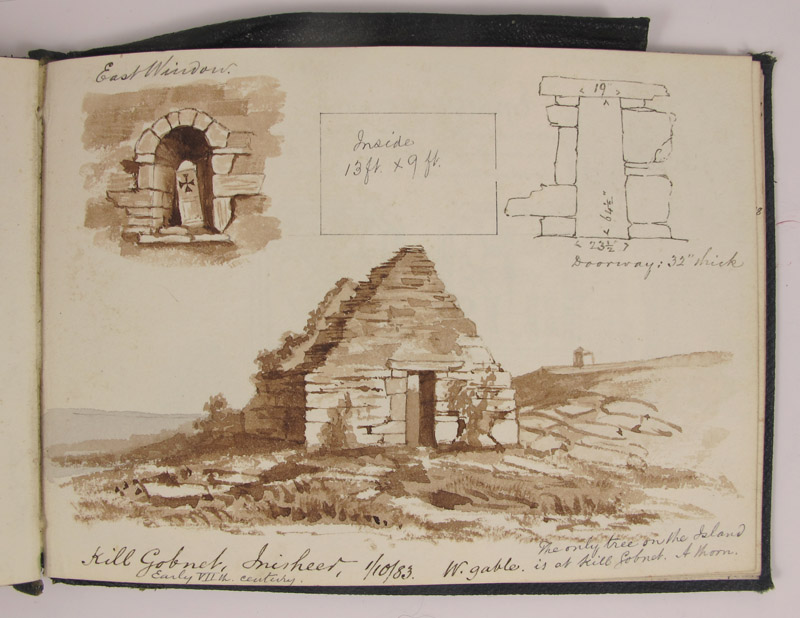 East Window.
Inside
13 ft. x 9 ft.
19
64½"
23½"
Doorway: 32" thick
Kill Gobnet, Inisheer, 1/10/83. W. gable.
Early VII.th. century.
The only tree on the Island
is at Kill Gobnet. A thorn.